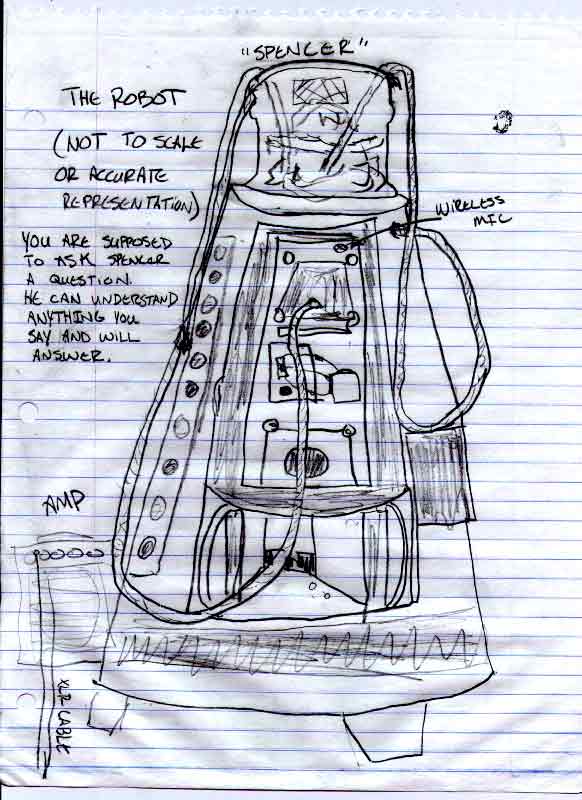 "SPENCER"
THE ROBOT
(NOT TO SCALE
OR ACCURATE
REPRESENTATION)
WIRELESS
MIC
YOU ARE SUPPOSED
TO ASK SPENCER
A QUESTION.
HE CAN UNDERSTAND
ANYTHING YOU
SAY AND WILL
ANSWER.
AMP
XLR CABLE